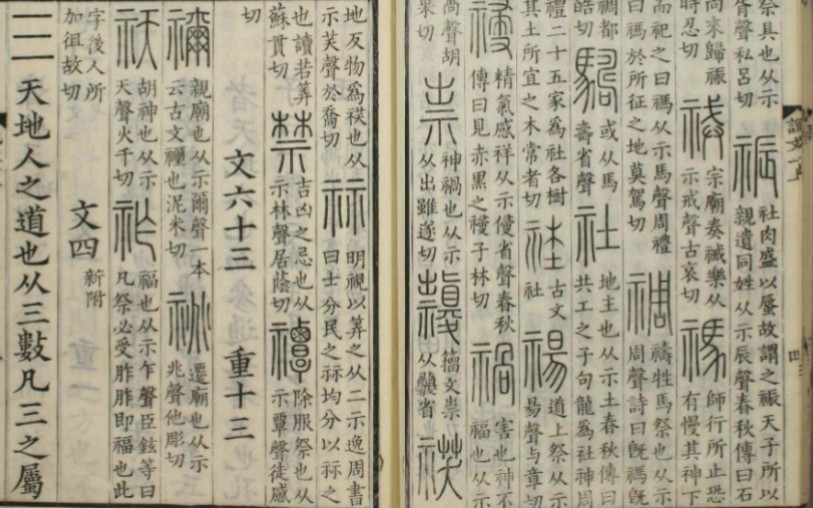 祭具也从示胥聲私呂切祳社肉盛以蜃故謂之祳天子所以親遺同姓从示辰聲春秋傳曰石
尚來歸祳時忍切祴宗廟奏祴樂从示戒聲古哀切禡師行所止恐有慢其神下
而祀之曰禡从示馬聲周禮曰禡於所征之地莫駕切禂禱牲馬祭也从示周聲詩曰旣禡旣
禂都皓切或从馬壽省聲社地主也从示土春秋傳曰共工之子句龍爲社神周
禮二十五家爲社各樹其土所宜之木常者切𥙭古文社禓道上祭从示昜聲与章切
祲精氣感祥从示侵省聲春秋傳曰見赤黑之祲子林切禍害也神不福也从示
咼聲胡果切祟神禍也从示从出雖遂切籒文祟从省祅
地反物爲祅也从示芺聲於喬切祘明視以筭之从二示逸周書曰士分民之祘均分以祘之
也讀若筭蘇貫切禁吉凶之忌也从示林聲居蔭切禫除服祭也从示覃聲徒感
切 文六十三 重十三
禰親廟也从示爾聲一本云古文禰也泥米切祧遷廟也从示兆聲他彫切
祆胡神也从示天聲火千切祚福也从示乍聲臣鉉等曰凡祭必受胙胙即福也此
字後人所加徂故切 文四 新附
三天地人之道也从三數凡三之屬